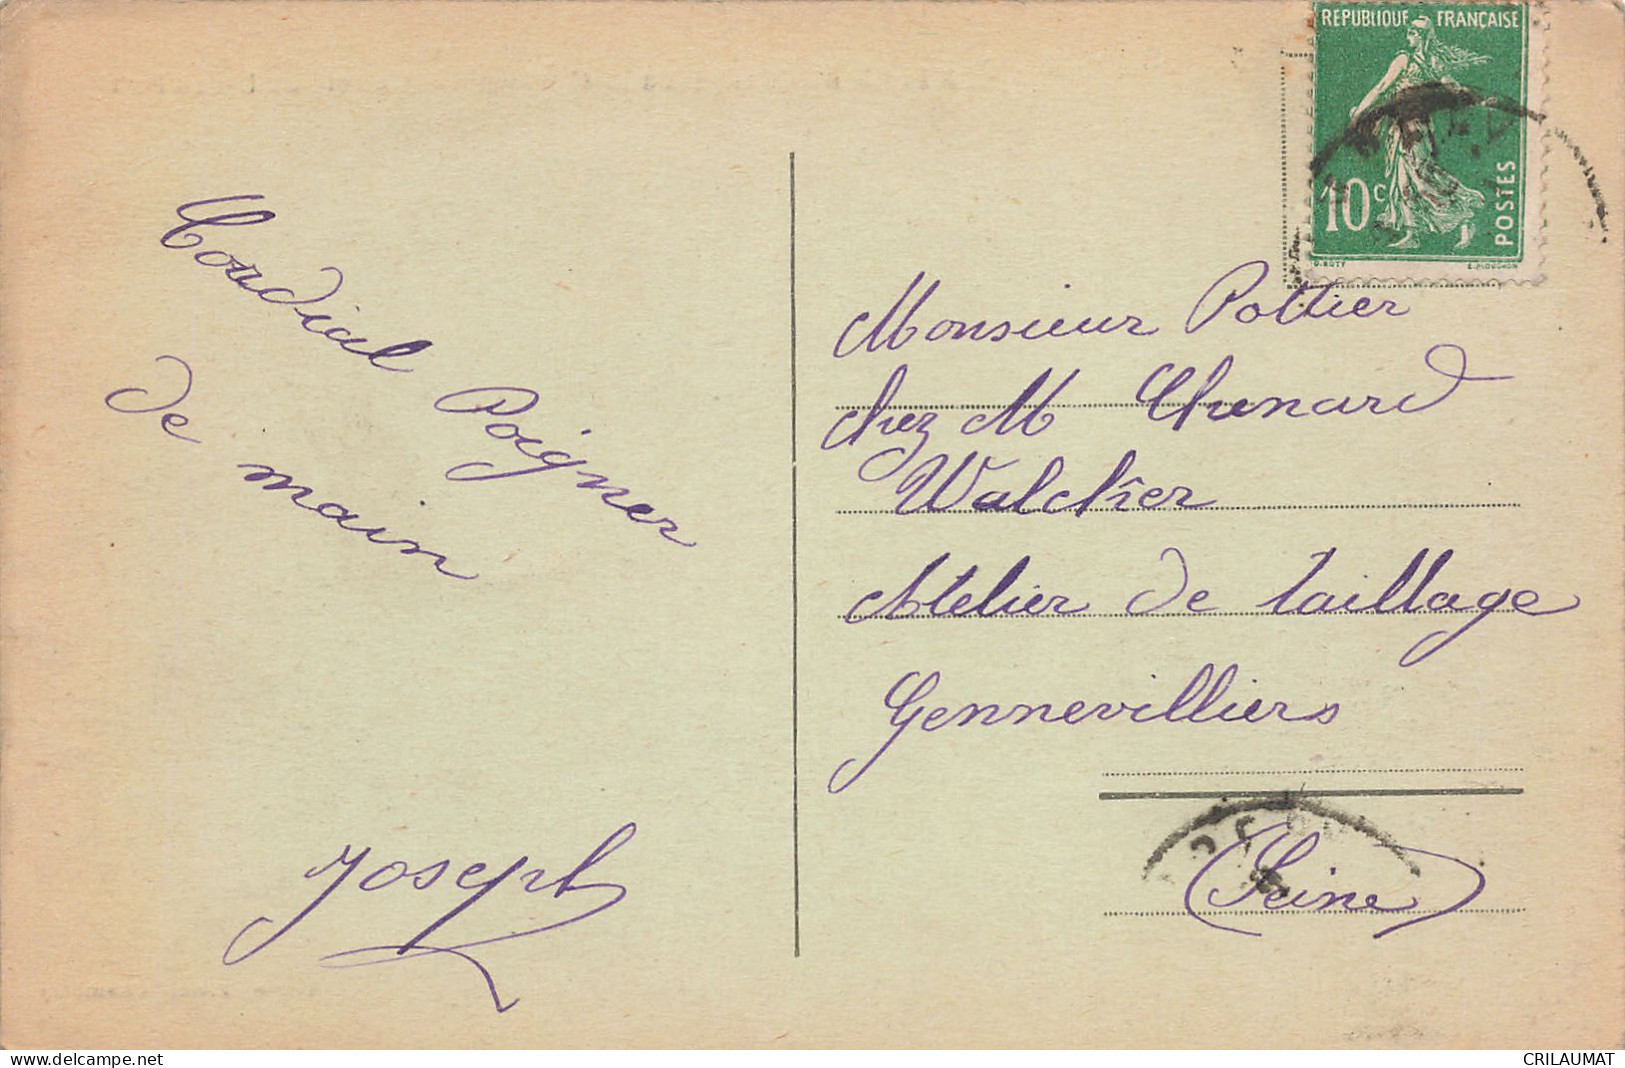 RÉPUBLIQUE FRANÇAISE
10c
POSTES
O. ROTY
E. MOUCHON
Cordial Poigner
de main
Joseph
Monsieur Pottier
chez M Chenard
Walcker
Atelier de taillage
Gennevilliers
(Seine)
www.delcampe.net
CRILAUMAT